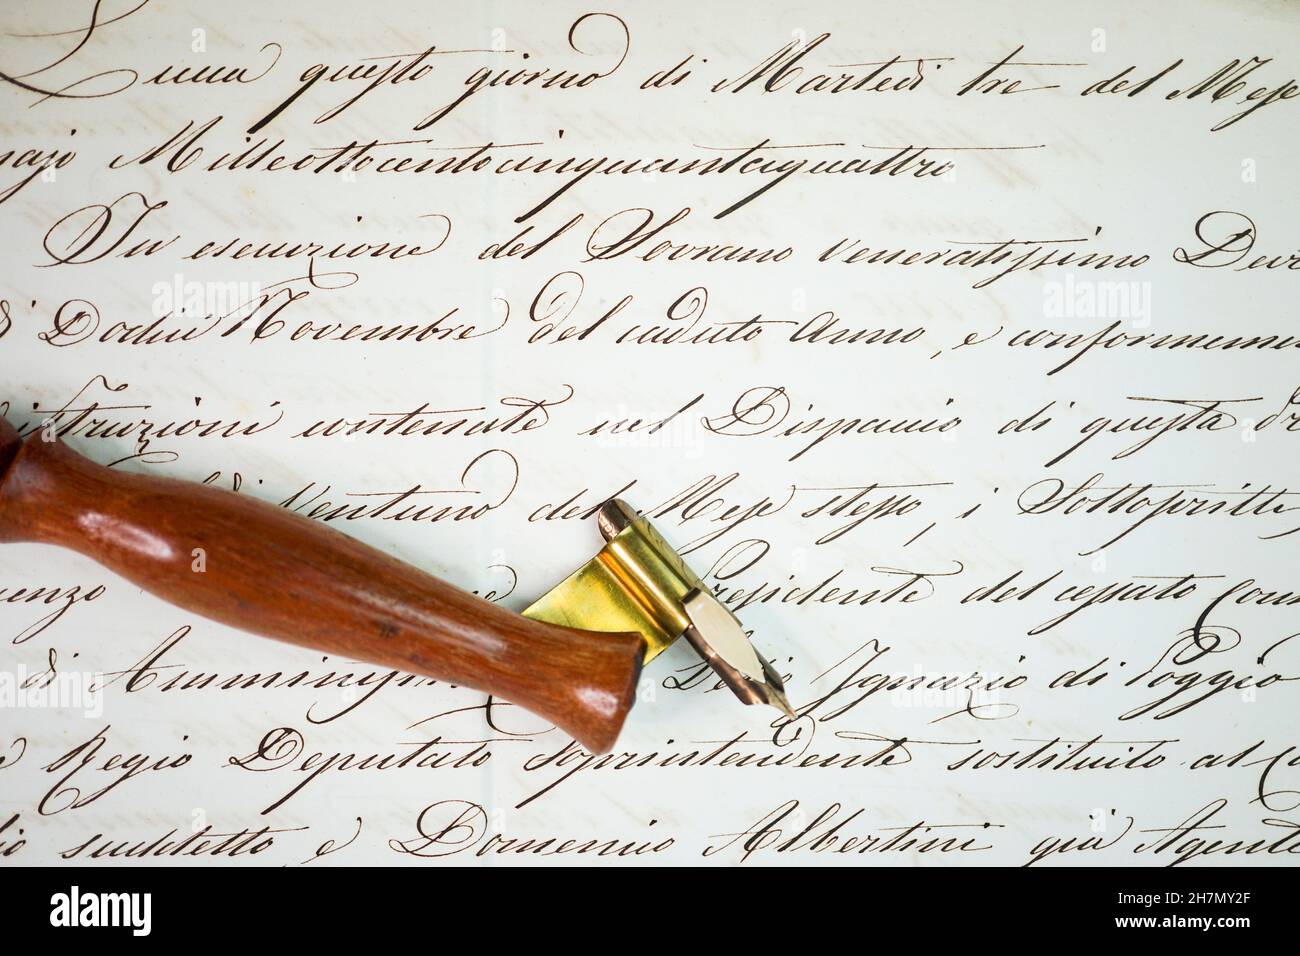 Lucca questo giorno di Martedì tre del Mese
Milleottocentocinquantaquattro
In esecuzione del Sovrano Veneratissimo
di Dodici Novembre del caduto anno, e
contenute nel Dispaccio di questa
Ventuno del Mese stesso, i Sottoscritti
Presidente del cessato
di Ignazio di Poggio
Regio Deputato Soprintendente sostituito al
suddetto, e Domenico Albertini già Agente
alamy
Image ID: 2H7MY2F
www.alamy.com